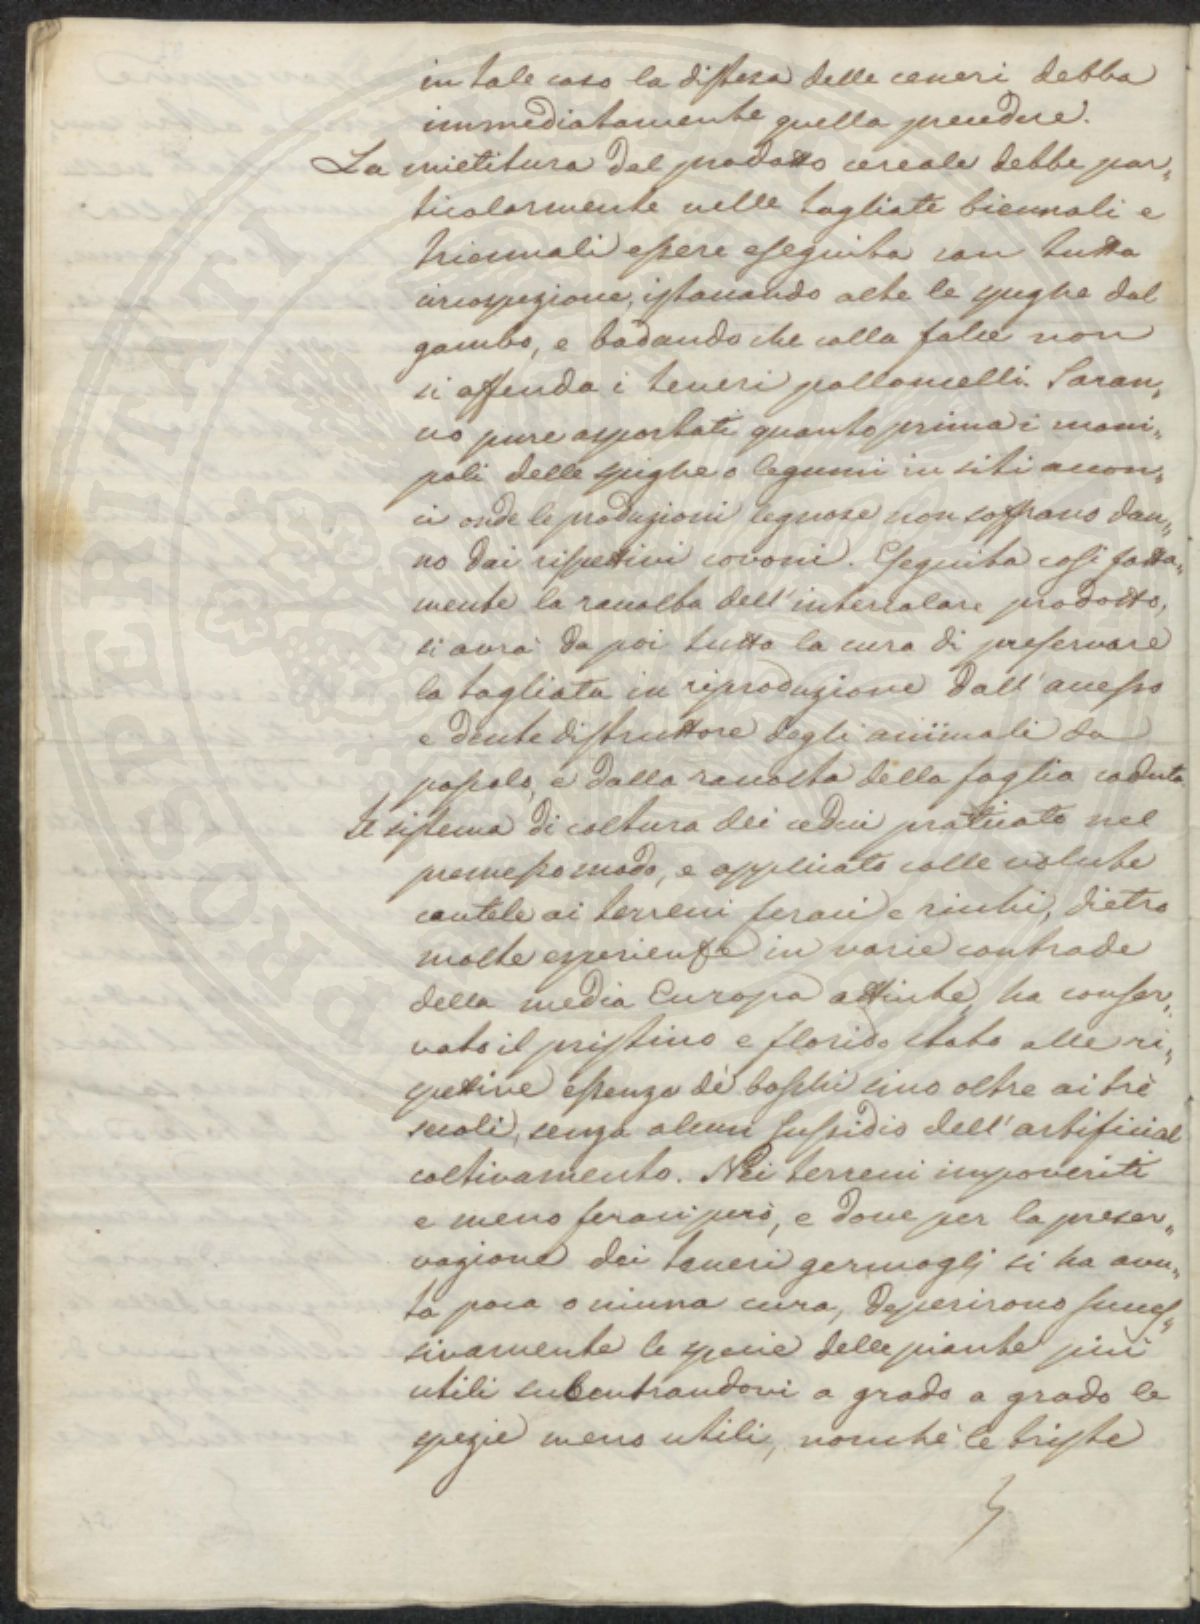 in tale caso la distesa delle ceneri debba
immediatamente quella precedere.
La mietitura del prodotto cereale debbe par„
ticolarmente nelle tagliate biennali e
triennali essere eseguita con tutta
circospezione, istaccando alte le spighe dal
gambo, e badando che colla falce non
si offenda i teneri polloncelli. Saran„
no pure asportati quanto prima i mani„
poli delle spighe o legumi in siti accon„
ci onde le produzioni legnose non soffrano dan„
no dai rispettivi covoni. Eseguita così fatta„
mente la raccolta dell'intercalare prodotto,
si avrà da poi tutta la cura di preservare
la tagliata in riproduzione dall'accesso
e dente distruttore degli animali da
pascolo, e dalla raccolta della foglia caduta.
Il sistema di coltura dei cedui praticato nel
premesso modo, e applicato colle volute
cautele ai terreni feraci e ricchi, dietro
molte esperienze in varie contrade
della media Europa attinte, ha conser„
vato il pristino e florido stato alle ri„
spettive essenze de' boschi sino oltre ai trè
secoli, senza alcun sussidio dell'artificial
coltivamento. Nei terreni impoveriti
e meno feraci però, e dove per la preser„
vazione dei teneri germoglj si ha avu„
ta poca o niuna cura, deperirono succes„
sivamente le specie delle piante più
utili subentrandovi a grado a grado le
spezie meno utili, nonchè le triste
PROSPERITATI